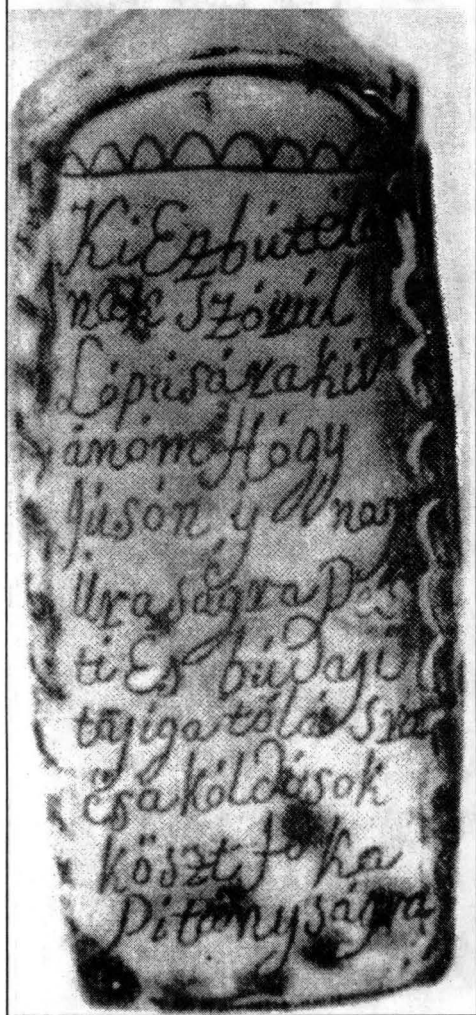 Ki Ez bútélá
nak szóvúl
Lópisáza kiv
ánóm Hógy
júsón ÿ nagy
Úraságra Pes
ti Es búdaji
tájiga tólásra
Csa kóldúsok
köszt fő ka
Pitányságra